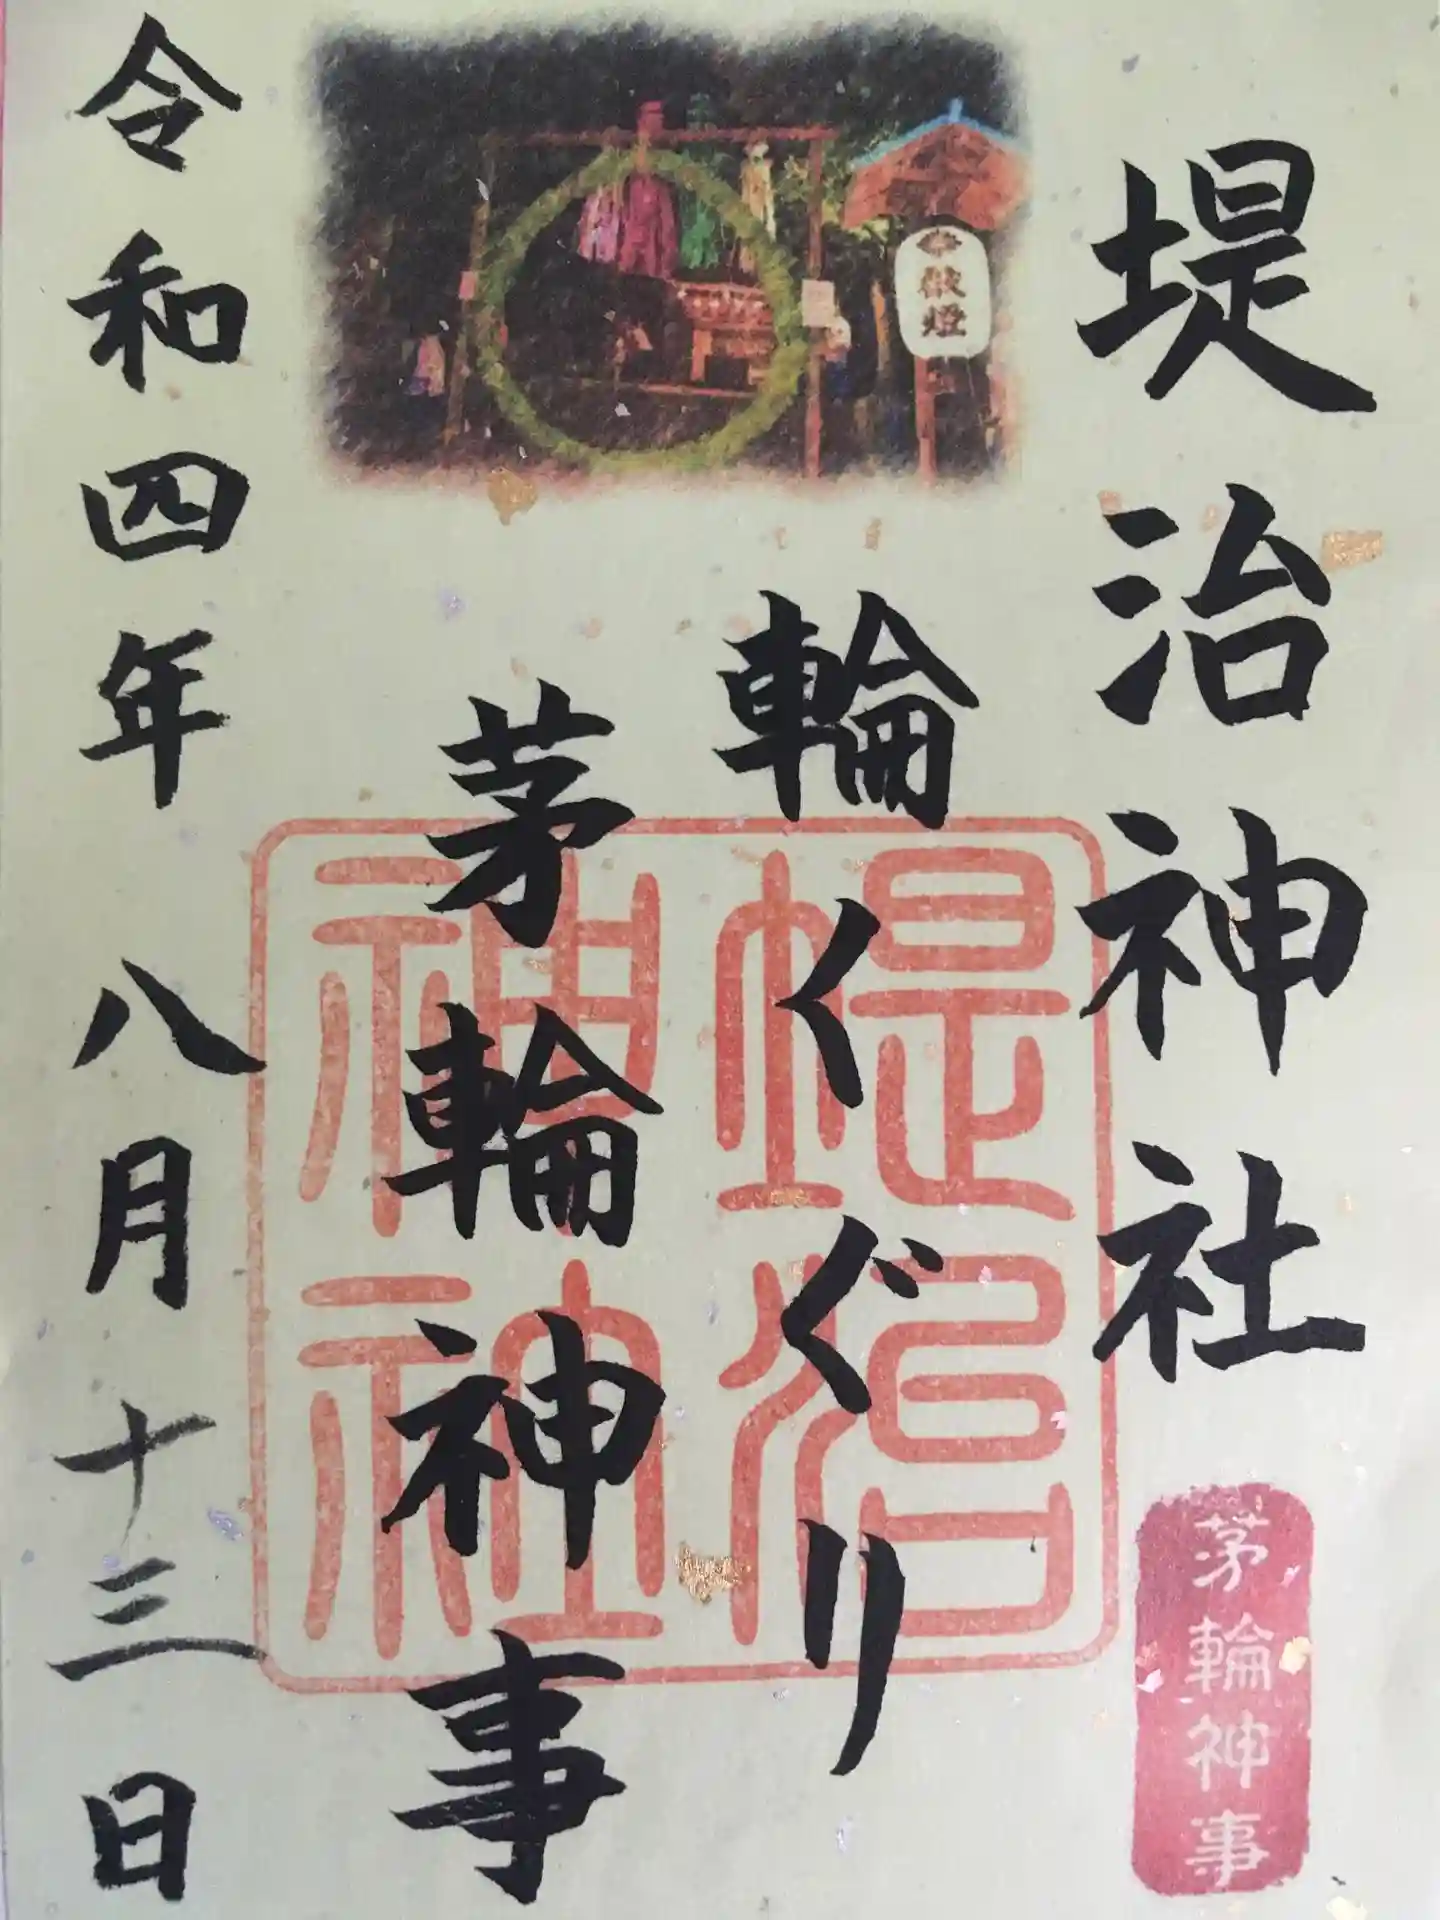 堤治神社
茅輪神事
輪くぐり
茅輪神事
令和四年 八月十三日
献燈
堤治
神社